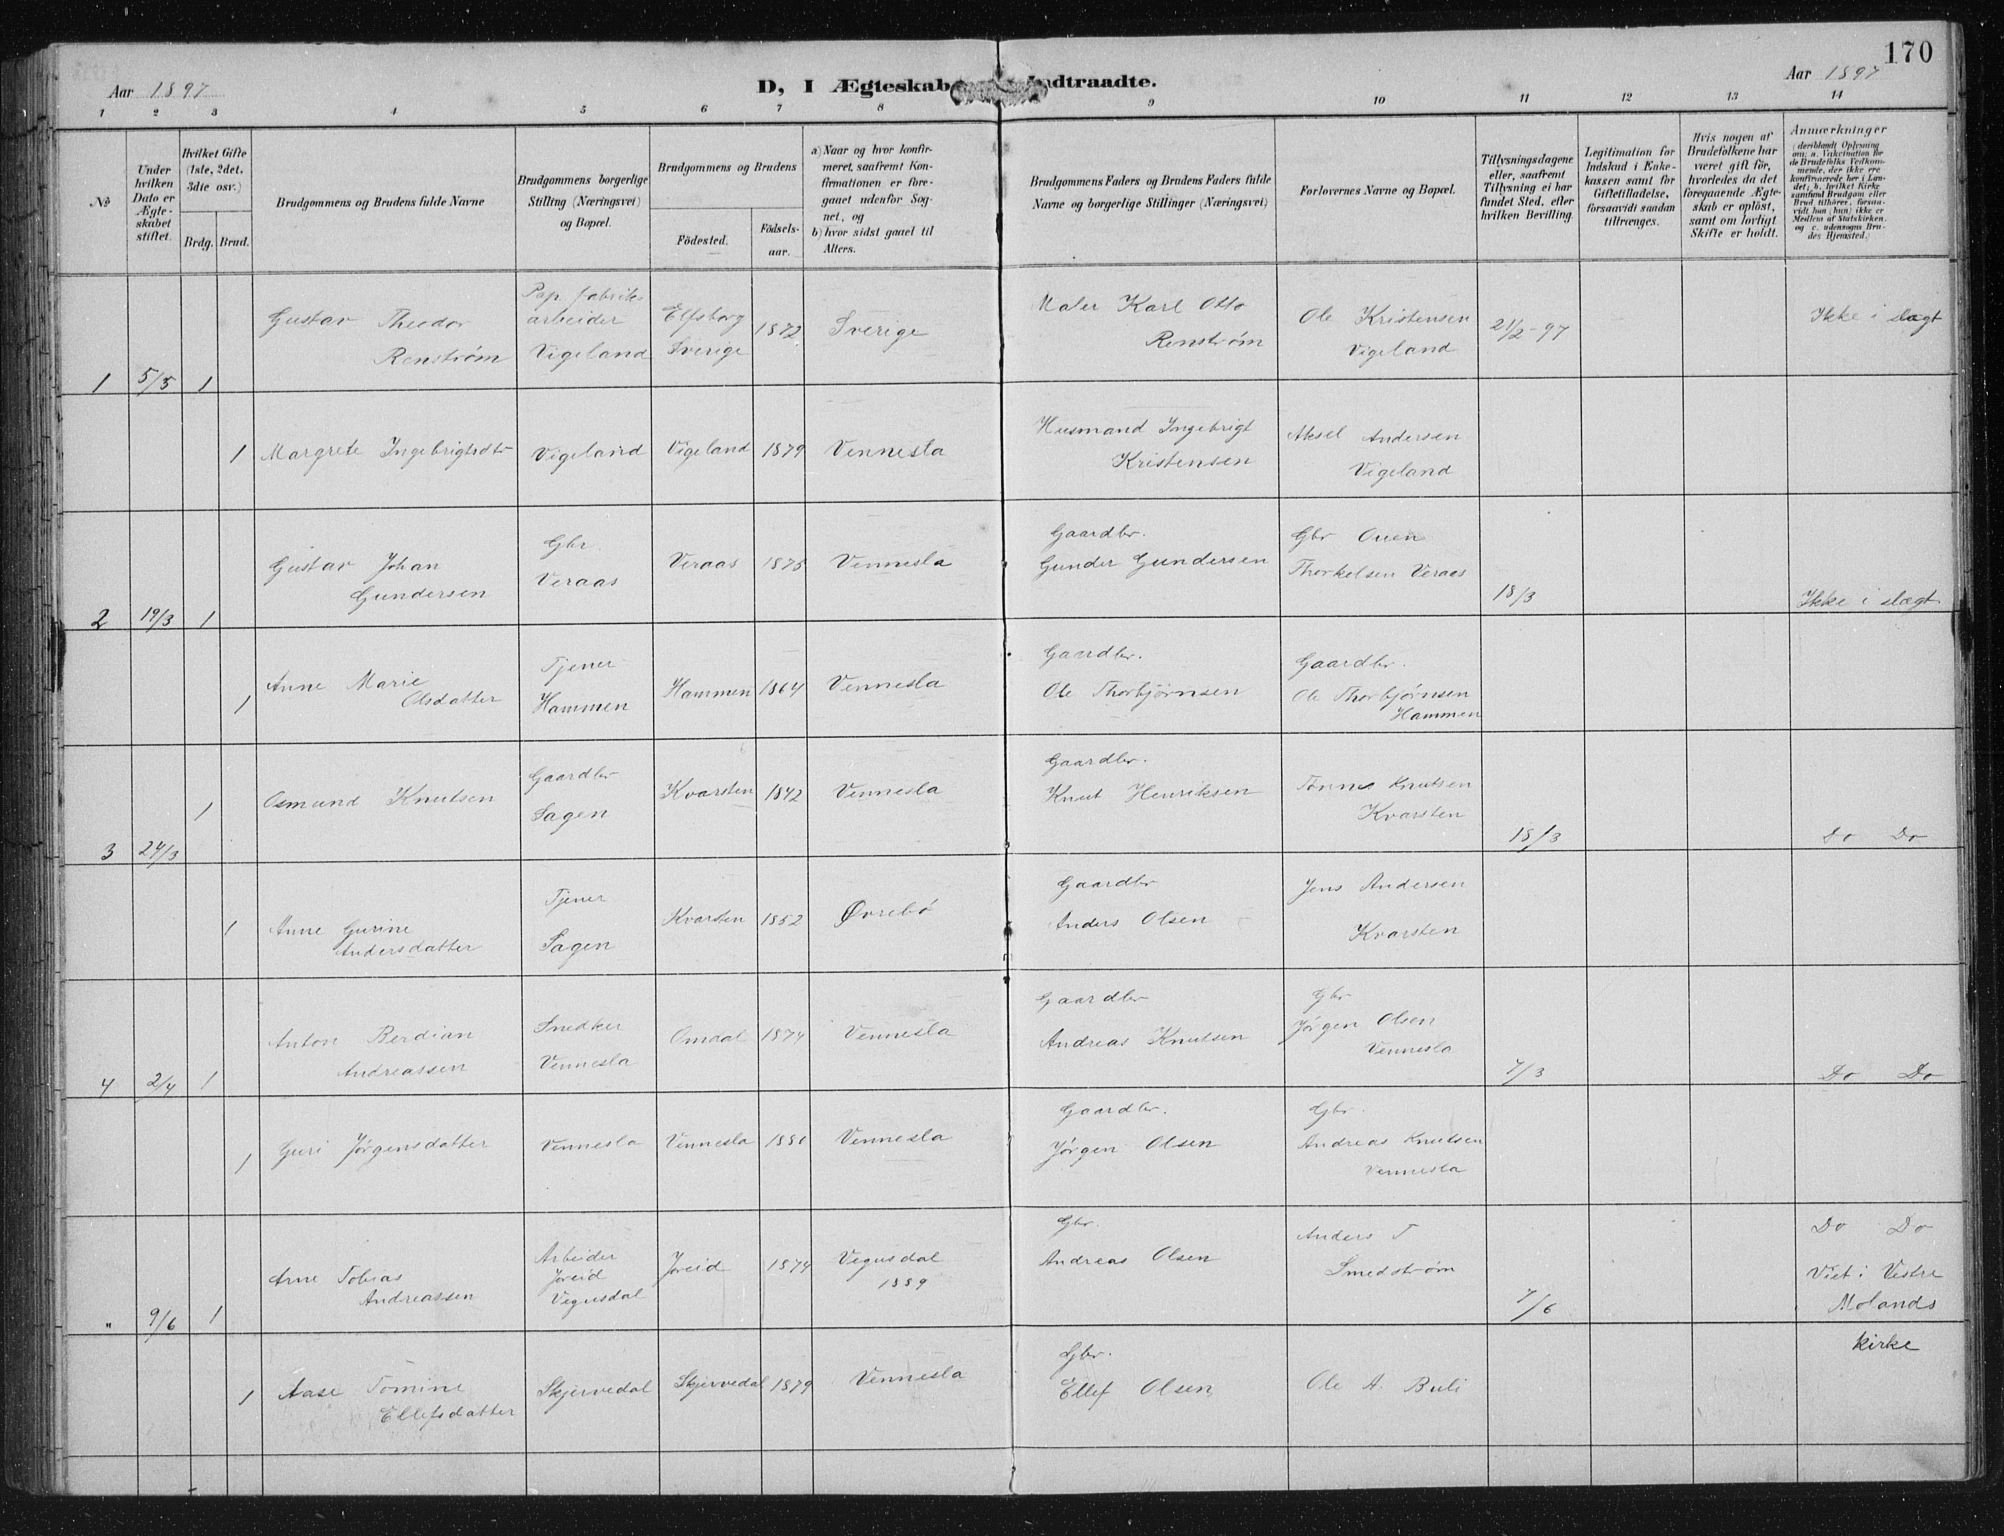 170
Aar 1897
D, I Ægteskab Indtraadte.
Aar 1897
1 2 3 4 5 6 7 8 9 10 11 12 13 14
№
Under hvilken Dato er Ægteskabet stiftet.
Hvilket Gifte (1ste, 2det, 3dte osv.)
Brdg. Brud.
Brudgommens og Brudens fulde Navne
Brudgommens borgerlige Stilling (Næringsvei) og Bopæl.
Brudgommens og Brudens
Födested.
Födselsaar.
a) Naar og hvor konfirmeret, saafremt Konfirmationen er foregaaet udenfor Sognet, og
b) hvor sidst gaaet til Alters.
Brudgommens Faders og Brudens Faders fulde Navne og borgerlige Stillinger (Næringsvei)
Forlovernes Navne og Bopæl.
Tillysningsdagene eller, saafremt Tillysning ei har fundet Sted, efter hvilken Bevilling.
Legitimation for Indskud i Enkekassen samt for Giftetilladelse, forsaavidt saadan tiltrænges.
Hvis nogen af Brudefolkene har været gift för, hvorledes da det foregaaende Ægteskab er oplöst, samt om lovligt Skifte er holdt.
Anmærkninger (deriblandt Oplysning om: a. Vakcination for de Brudefolks Vedkommende, der ikke ere konfirmerede her i Landet; b. hvilket Kirkesamfund Brudgom eller Brud tilhörer, forsaavidt han (hun) ikke er Medlem af Statskirken, og c. udensogns Brudes Hjemsted.)
1 5/3 1 Gustav Theodor Renstrøm Pap. fabriksarbeider Vigeland Elfsborg Sverige 1872 Sverige Maler Karl Otto Renstrøm Ole Kristensen Vigeland 21/2-97 Ikke i slægt
1 Margrete Ingebrigtsdtr Vigeland Vigeland 1879 Vennesla Husmand Ingebrigt Kristensen Aksel Andersen Vigeland
2 19/3 1 Gustav Johan Gundersen Gbr. Veraas Veraas 1875 Vennesla Gaardbr. Gunder Gundersen Gbr Ouen Thorkelsen Veraas 18/3 Ikke i slægt
1 Anne Marie Olsdatter Tjener Hammen Hammen 1864 Vennesla Gaardbr. Ole Thorbjørnsen Gaardbr. Ole Thorbjørnsen Hammen
3 24/3 1 Osmund Knutsen Gaardbr Sagen Kvarsten 1842 Vennesla Gaardbr. Knut Henriksen Tønnes Knutsen Kvarsten 18/3 Do Do
1 Anne Gurine Andersdatter Tjener Sagen Kvarsten 1852 Øvrebö Gaardbr Anders Olsen Jens Andersen Kvarsten
4 2/4 1 Anton Berdian Andreassen Snedker Vennesla Omdal 1874 Vennesla Gaardbr Andreas Knutsen Gbr Jørgen Olsen Vennesla 7/3 Do Do
1 Guri Jørgensdatter Vennesla Vennesla 1880 Vennesla Gaardbr. Jørgen Olsen Gbr. Andreas Knutsen Vennesla
" 9/6 1 Arne Tobias Andreassen Arbeider Joreid Vegusdal Joreid 1874 Vegusdal 1889 Gbr. Andreas Olsen Anders T Smedstrøm 7/6 Do Do Viet i Vestre Molands kirke
1 Aase Tomine Ellefsdatter Skjervedal Skjervedal 1879 Vennesla Gbr. Ellef Olsen Ole A. Buli